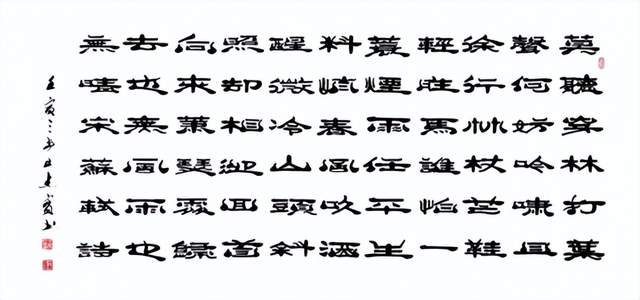 莫聽穿林打葉
聲何妨吟嘯且
徐行竹杖芒鞋
輕勝馬誰怕一
蓑煙雨任平生
料峭春風吹酒
醒微冷山頭斜
照却相迎回首
向來蕭瑟處歸
去也無風雨也
無晴宋蘇軾詩
壬寅之